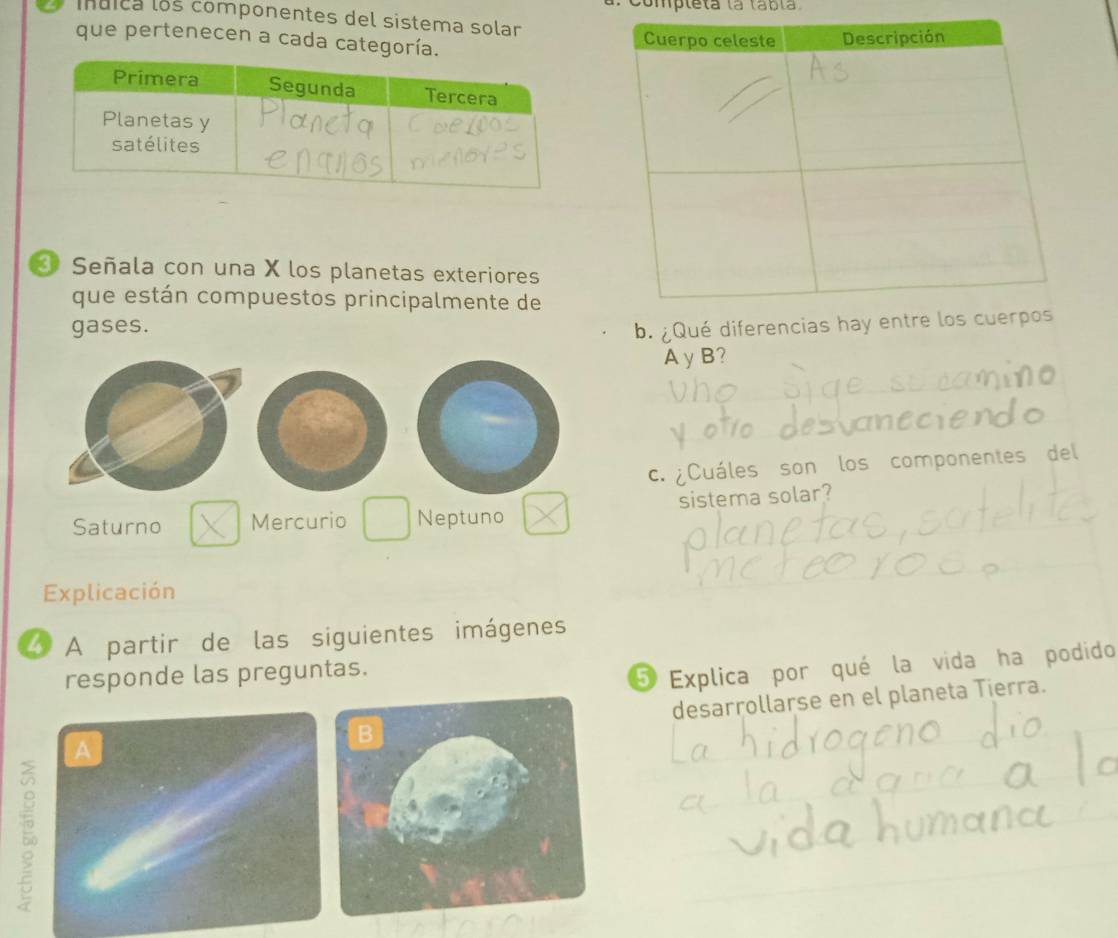 2 Indica los componentes del sistema solar
que pertenecen a cada categoría.
Primera Segunda Tercera
Planetas y
satélites
Planeta
enanos
Cuerpos
menores
3 Señala con una X los planetas exteriores
que están compuestos principalmente de
gases.
Saturno X Mercurio Neptuno X
Explicación
4 A partir de las siguientes imágenes
responde las preguntas.
A
B
Archivo gráfico SM
a. Completa la tabla.
Cuerpo celeste Descripción
As
b. ¿Qué diferencias hay entre los cuerpos
A y B?
Uno sige su camino
y otro desvaneciendo
c. ¿Cuáles son los componentes del
sistema solar?
planetas, satelite
meteoros
5 Explica por qué la vida ha podido
desarrollarse en el planeta Tierra.
La hidrogeno dio
a la agua a la
vida humana